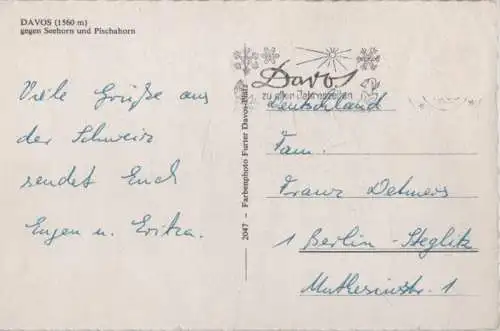 DAVOS (1560 m)
gegen Seehorn und Pischahorn
Viele Grüße aus
der Schweiz
sendet Euch
Eugen u. Erika.
2047 - Farbenphoto Furter Davos-Platz
Davos
zu allen Jahreszeiten
Deutschland
Fam.
Franz Detmers
1 Berlin-Steglitz
Muthesiusstr. 1